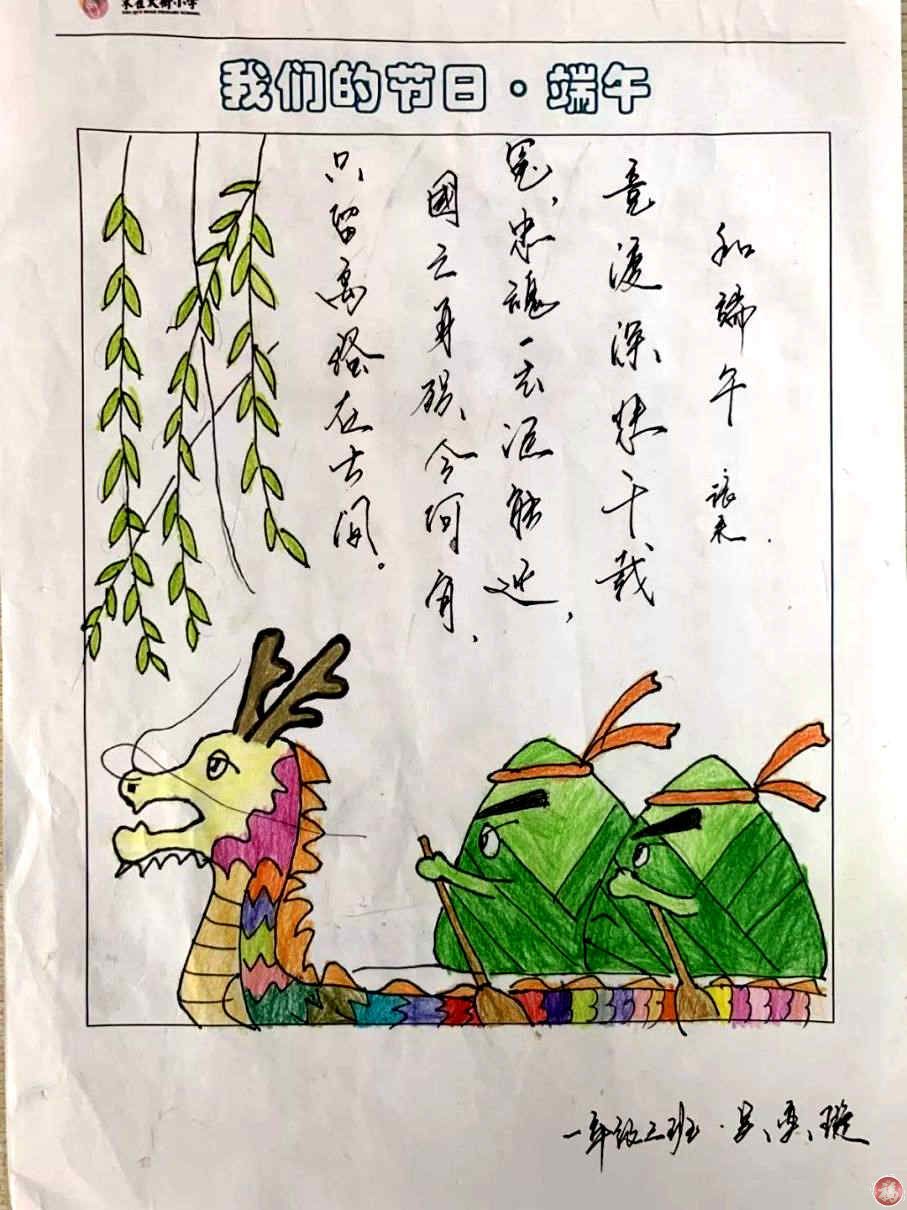 我们的节日·端午
和端午 张耒
竞渡深悲千载
冤,忠魂一去讵能还,
國亡身殒今何有,
只留离骚在世间。
一年级三班·吴奕璇
福